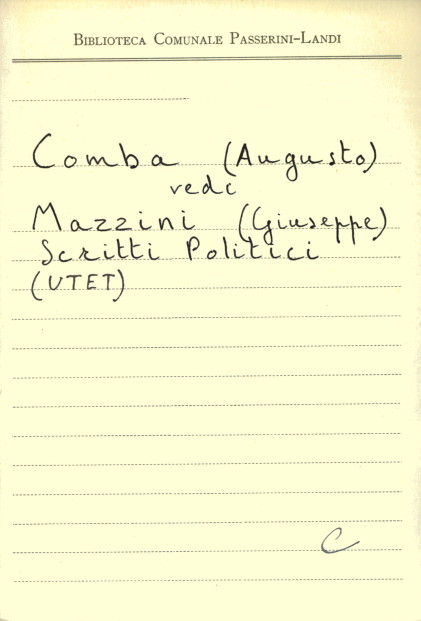 BIBLIOTECA COMUNALE PASSERINI-LANDI
Comba (Augusto)
vedi
Mazzini (Giuseppe)
Scritti Politici
(UTET)
C